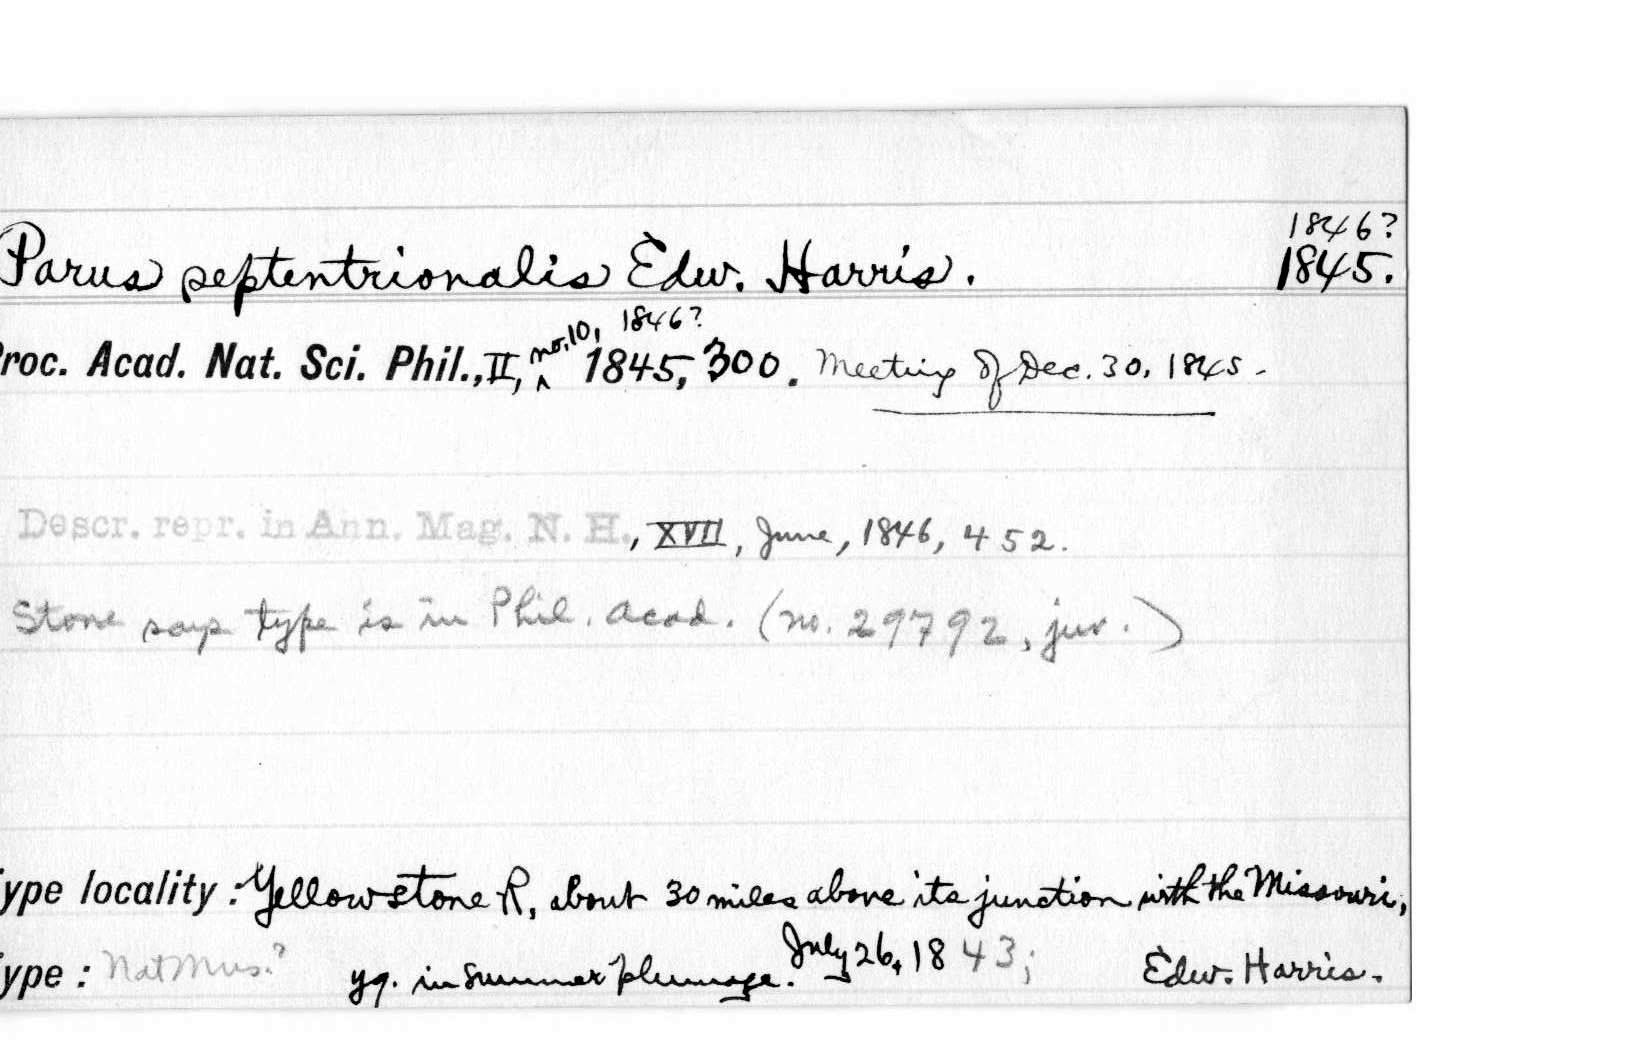 1846?
Parus septentrionalis Edw. Harris. 1845.
no. 10, 1846?
roc. Acad. Nat. Sci. Phil., II, ^ 1845, 300. Meeting of Dec. 30, 1845.
Descr. repr. in Ann. Mag. N. H., XVII, June, 1846, 452.
Stone says type is in Phil. Acad. (no. 29792, juv.)
ype locality: Yellowstone R, about 30 miles above its junction with the Missouri,
ype: Nat Mus.? yg. in summer plumage. July 26, 1843; Edw. Harris.